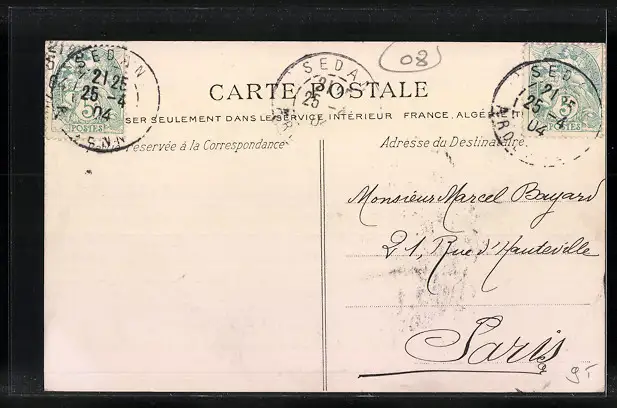 SEDAN
21 25
25 -4
04
POSTES
(08)
SEDAN
25
CARTE POSTALE
SED
21 25
25 -4
04
ARD
SER SEULEMENT DANS LE SERVICE INTÉRIEUR FRANCE, ALGÉR
réservée à la Correspondance
Adresse du Destinataire.
Monsieur Marcel Bayard
21, Rue d'Hauteville
Paris